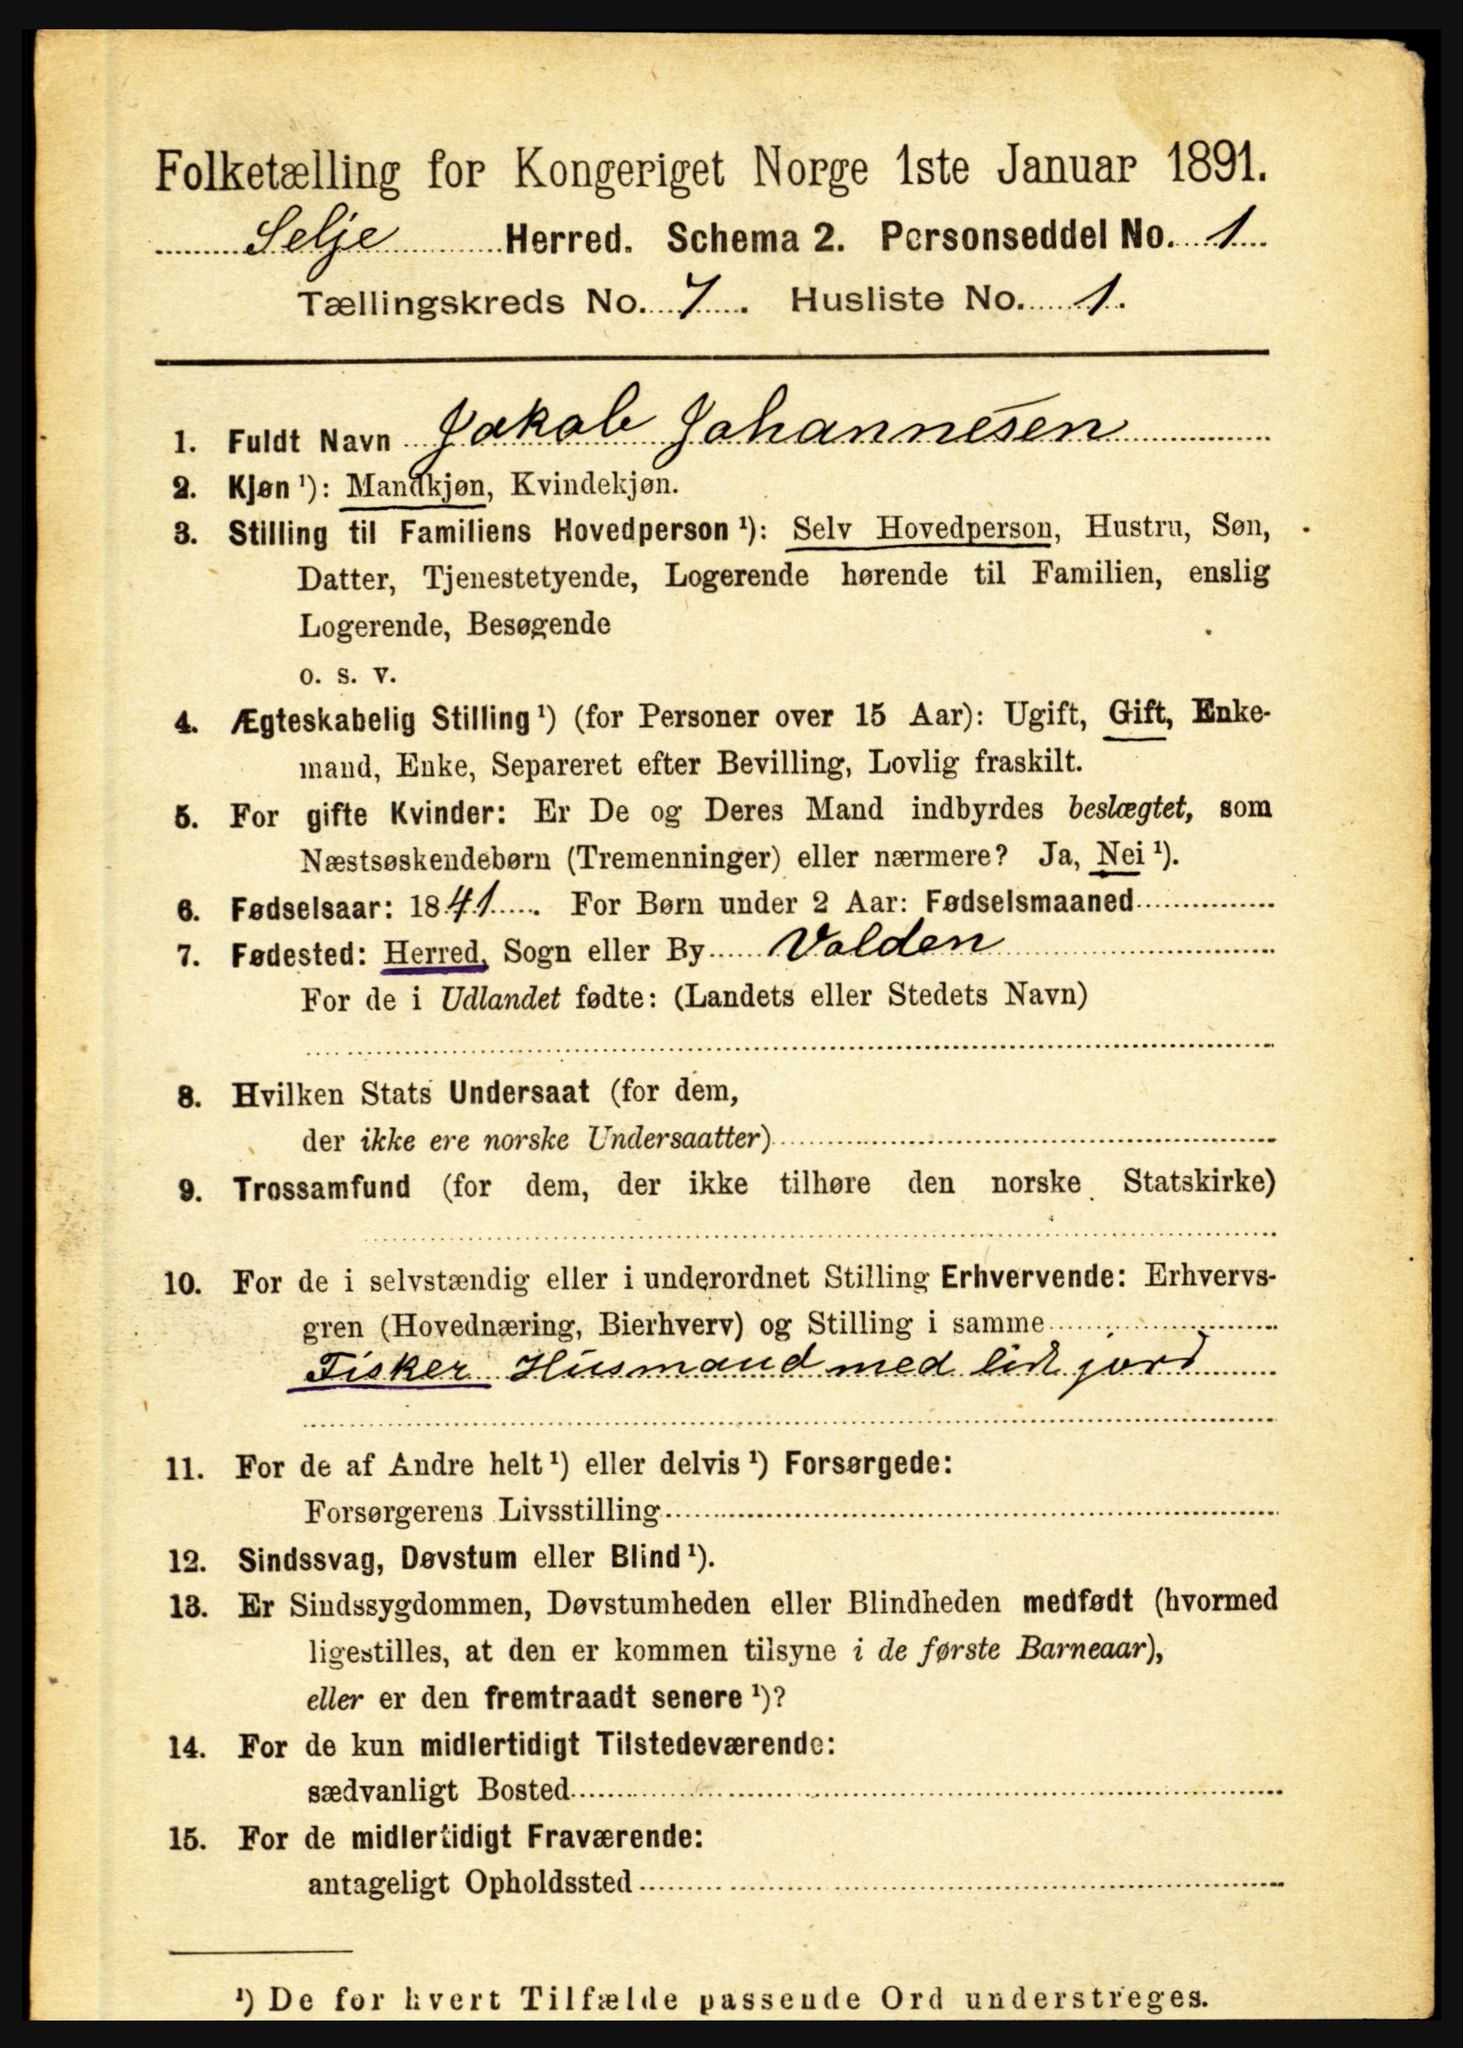 Folketælling for Kongeriget Norge 1ste Januar 1891.
Selje Herred. Schema 2. Personseddel No. 1
Tællingskreds No. 7. Husliste No. 1.
1. Fuldt Navn Jakob Johannesen
2. Kjøn ¹): Mandkjøn, Kvindekjøn.
3. Stilling til Familiens Hovedperson ¹): Selv Hovedperson, Hustru, Søn,
Datter, Tjenestetyende, Logerende hørende til Familien, enslig
Logerende, Besøgende
o. s. v.
4. Ægteskabelig Stilling ¹) (for Personer over 15 Aar): Ugift, Gift, Enke-
mand, Enke, Separeret efter Bevilling, Lovlig fraskilt.
5. For gifte Kvinder: Er De og Deres Mand indbyrdes beslægtet, som
Næstsøskendebørn (Tremenninger) eller nærmere? Ja, Nei ¹).
6. Fødselsaar: 1841. For Børn under 2 Aar: Fødselsmaaned
7. Fødested: Herred, Sogn eller By Volden
For de i Udlandet fødte: (Landets eller Stedets Navn)
8. Hvilken Stats Undersaat (for dem,
der ikke ere norske Undersaatter)
9. Trossamfund (for dem, der ikke tilhøre den norske Statskirke)
10. For de i selvstændig eller i underordnet Stilling Erhvervende: Erhvervs-
gren (Hovednæring, Bierhverv) og Stilling i samme
Fisker Husmand med lidt jord
11. For de af Andre helt ¹) eller delvis ¹) Forsørgede:
Forsørgerens Livsstilling
12. Sindssvag, Døvstum eller Blind ¹).
13. Er Sindssygdommen, Døvstumheden eller Blindheden medfødt (hvormed
ligestilles, at den er kommen tilsyne i de første Barneaar),
eller er den fremtraadt senere ¹)?
14. For de kun midlertidigt Tilstedeværende:
sædvanligt Bosted
15. For de midlertidigt Fraværende:
antageligt Opholdssted
¹) De for hvert Tilfælde passende Ord understreges.